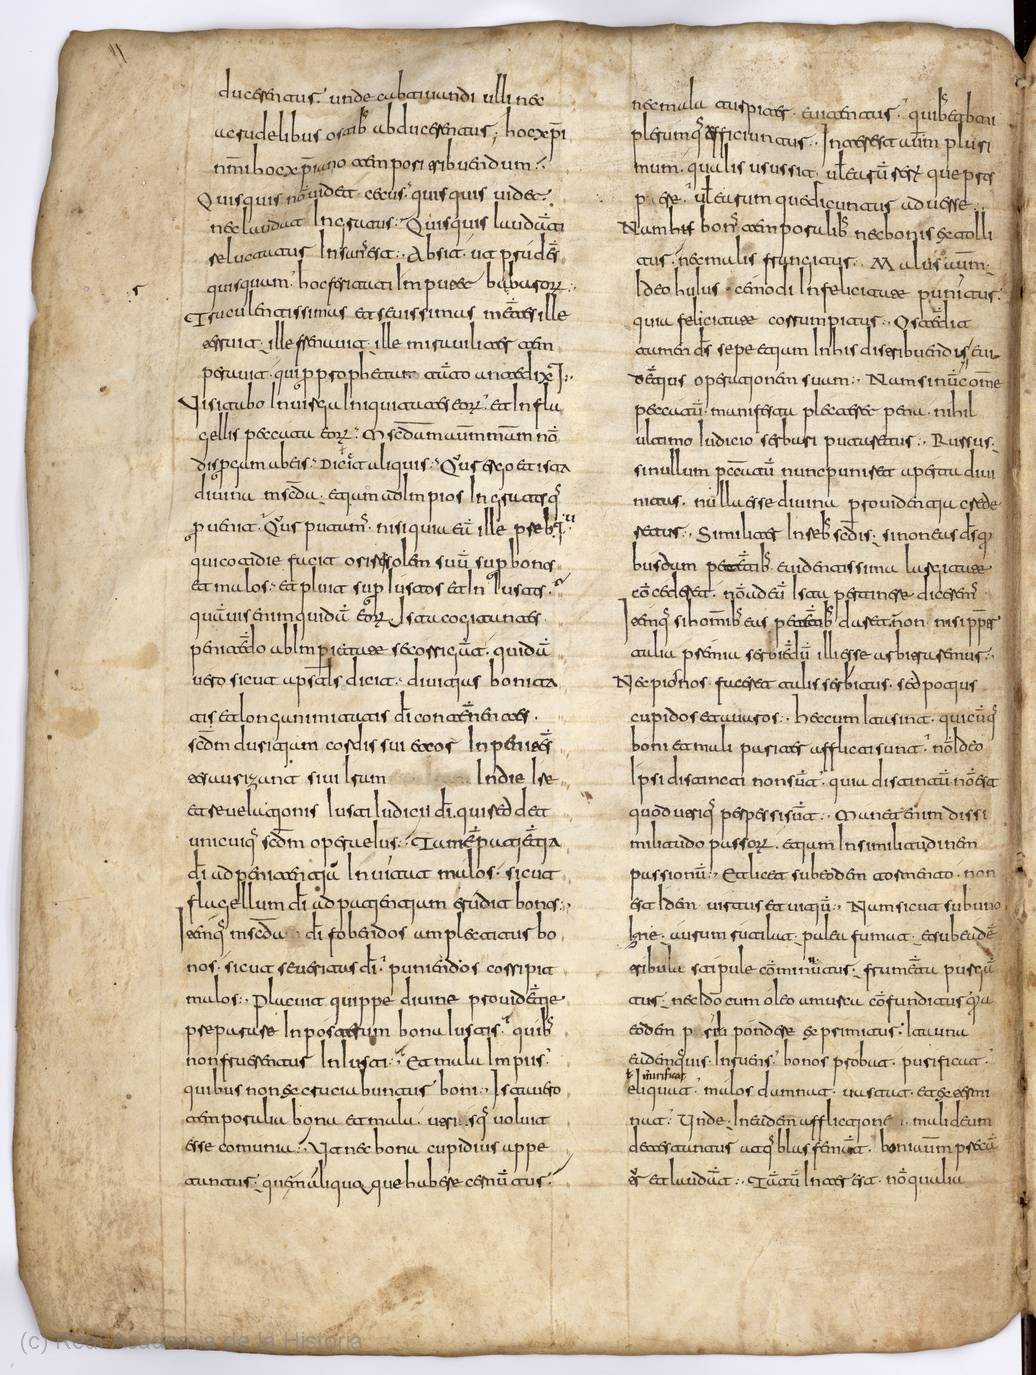 ducerentur. unde cabtiuandi ulli nec
a crudelibus ostib; abducerentur; hoc xp̄i
nm̄i hoc xp̄iano tempori tribuendum.
Quisquis nō uidet cecus. quisquis uidet
nec laudat Ingratus. Quisquis laudāti
reluctatur Insan; est. Absit. ut prudēs
quisquam. hoc feritati Imputet barbaror̄.
Truculentissimas et seuissimas mētes ille
terruit. ille frenauit. ille mirauiliter tem
perauit. qui p prophetam tāto ante dixit
Visitabo In uirga Iniquitates eor̄. et In fla
gellis peccata eor̄. Mscdam aūm mām nō
dispergam ab eis. Dicit aliquis. Qr̄s ergo et ista
diuina mscda. etiam ad Impios Ingratosq;
puenit. Qr̄s putam; nisi quia eū ille prebuit
qui cotidie facit oriri solem suū sup bonos
et malos. et pluit sup Iustos et In Iustos.
quāuis enim quidā eor̄ Ista cogitantes
penitēdo ab Impietate se corrigāt. quidā
uero sicut apstls dicit. diuitias bonita
tis et longanimitatis dī contēnentes.
scdm duritiam cordis sui et cor Inpenitēs
tesaurizant siui Iram In die Ire
et reuelationis Iusti Iudicii dī. qui reddet
unicuiq; scdm opera eius. Tamē patiētia
dī ad penitentiā Inuitat malos. sicut
flagellum dī ad patientiam erudit bonos.
Itemq; mscda dī fobendos amplectitur bo
nos. sicut seueritas dī. puniendos corripit
malos. Placuit quippe diuine prouidētie
preparare In posterum bona Iustis. quib;
non fruerentur Iniusti. Et mala Impiis.
quibus non excruciabuntur boni. Ista uero
temporalia bona et mala. utrisq; uoluit
esse comunia. Vt nec bona cupidius appe
tantur. que mali quoq; habere cernūtur.
nec mala turpiter euitentur. quib; et boni
plerumq; afficiuntur. Interest aūm pluri
mum. qualis usus sit. uel earū rerū que pros
p. esse. uel earum que dicuntur aduerse.
Nam bonus temporalib; nec bonis extolli
tur. nec malis frangitur. Malus aūm.
Ideo huius cemodi Infelicitate punitur.
quia felicitate corrumpitur. Ostēdit
tamen ds sepe etiam In his distribuendis eui
dētius operationem suam. Nam si nūc omne
peccatū. manifesta plecteret pena. nihil
ultimo Iudicio serbari putaretur. Rursus.
si nullum pcc̄atū nunc puniret aperta diui
nitas. nulla esse diuina prouidentia crede
retur. Similiter In reb; scdis. si non eas ds q
busdam petētib; euidentissima largitate
cōcederet. nō ad eū Ista pertinere dicerem;
Itemq; si homib; eas petētib; daret. non nisi pp̄ter
talia premia serbiēdū illi esse arbitraremur.
Nec pios nos faceret talis serbitus. sed potius
cupidos et auaros. hec cum Ita sint. quicūq;
boni et mali pariter afflicti sunt. nō Ideo
Ipsi distincti non sūt. quia distinctū nō est
quod utriq; perpessi sūt. Manet enim dissi
militudo passor̄. etiam In similitudinem
passionū. Et licet sub eodem tormento. non
est Idem uirtus et uitiū. Nam sicut sub uno
Igne. aurum rutilat. palea fumat. et sub eadē
tribula stipule cōminūtur. frumēta purgā
tur. nec Ideo cum oleo amurca cōfundit; qa
eodem p. preli pondere exprimitur. Ita una
eademq; uis. Inruens. bonos probat. purificat.
eliquat. malos damnat. uastat. et exterm
nat. Unde In eadem afflictione. mali deum
detestantur atq; blasfemāt. boni aūm precā
tr̄ et laudāt. Tātū Interest. nō qualia